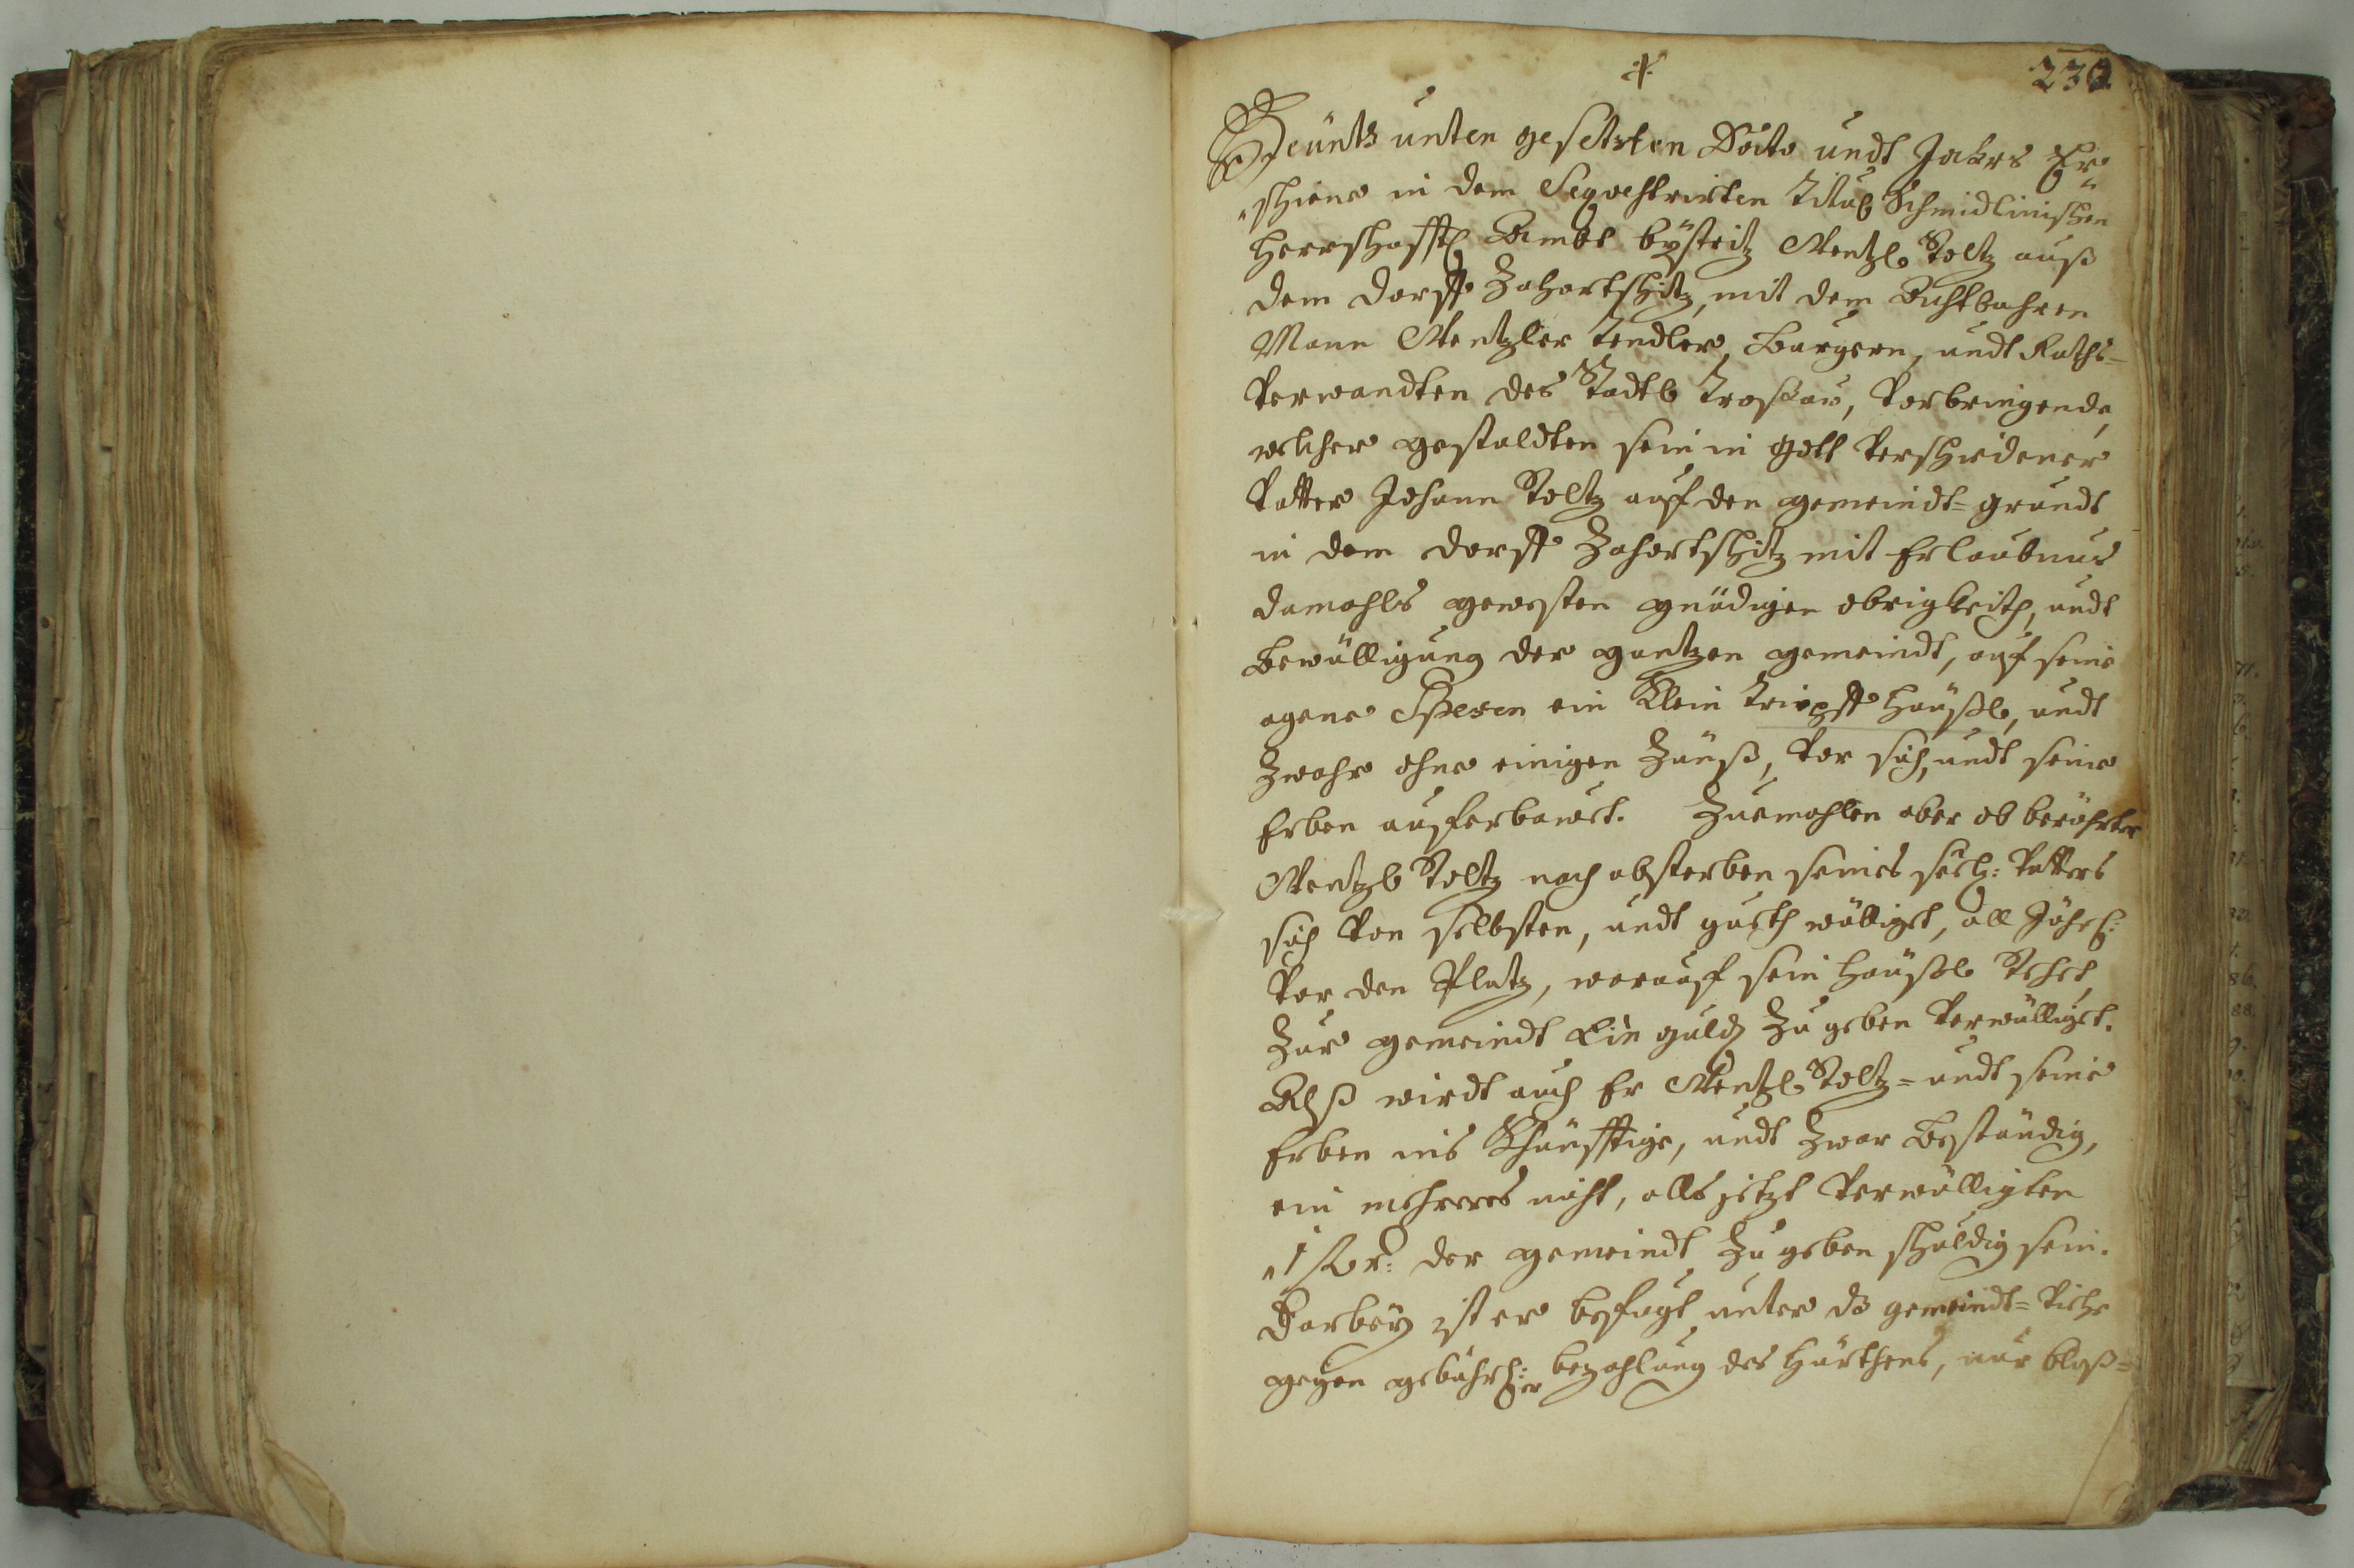 230
Heünth unten gesetzten Dato undt Jahrs Er„
„schiene in dem Seqvestrirten Titul Schmidlinischen
Herrschafftl Ambt büstritz Wentzl Stoltz auß
dem Dorff Zahortschitz, mit dem Achtbahren
Mann Wentzler Tendler, Burgern, undt Raths-
Verwandten des Stadtl Troßau, Vorbringende,
welcher gestaldten sein in Gott Verschiedener
Vatter Johann Stoltz auf den gemeindt-grundt
in dem Dorff Zahortschitz mit Erlaubnus
damahls gewesten gnädigen obrigkeith, undt
Bewülligung der gantzen gemeindt, auf seine
agene Spesen ein Klein Tripff Häußl, undt
Zwahr ohne einigen Zünß, Vor sich, undt seine
Erben auferbauet. Zuemahlen aber ob berührter
Wentzl Stoltz nach absterben seines seel: Vatters
sich Von selbsten, undt gueth wülligst, all Jährl:
Vor den Platz, worauf sein Häußl Stehet,
Zur gemeindt Ein guld Zu geben Verwülliget.
Alß wirdt auch Er Wentzl Stoltz- undt seine
Erben ins Khünfftige, undt Zwar Beständig,
ein mehreres nicht, allß jetzt Verwülligten
„1 flor: der gemeindt Zu geben schuldig sein.
Darbey ist er befugt unter dz gemeindt-Viehe
gegen gebührl:er bezahlung des Hürthens, nur bloß-